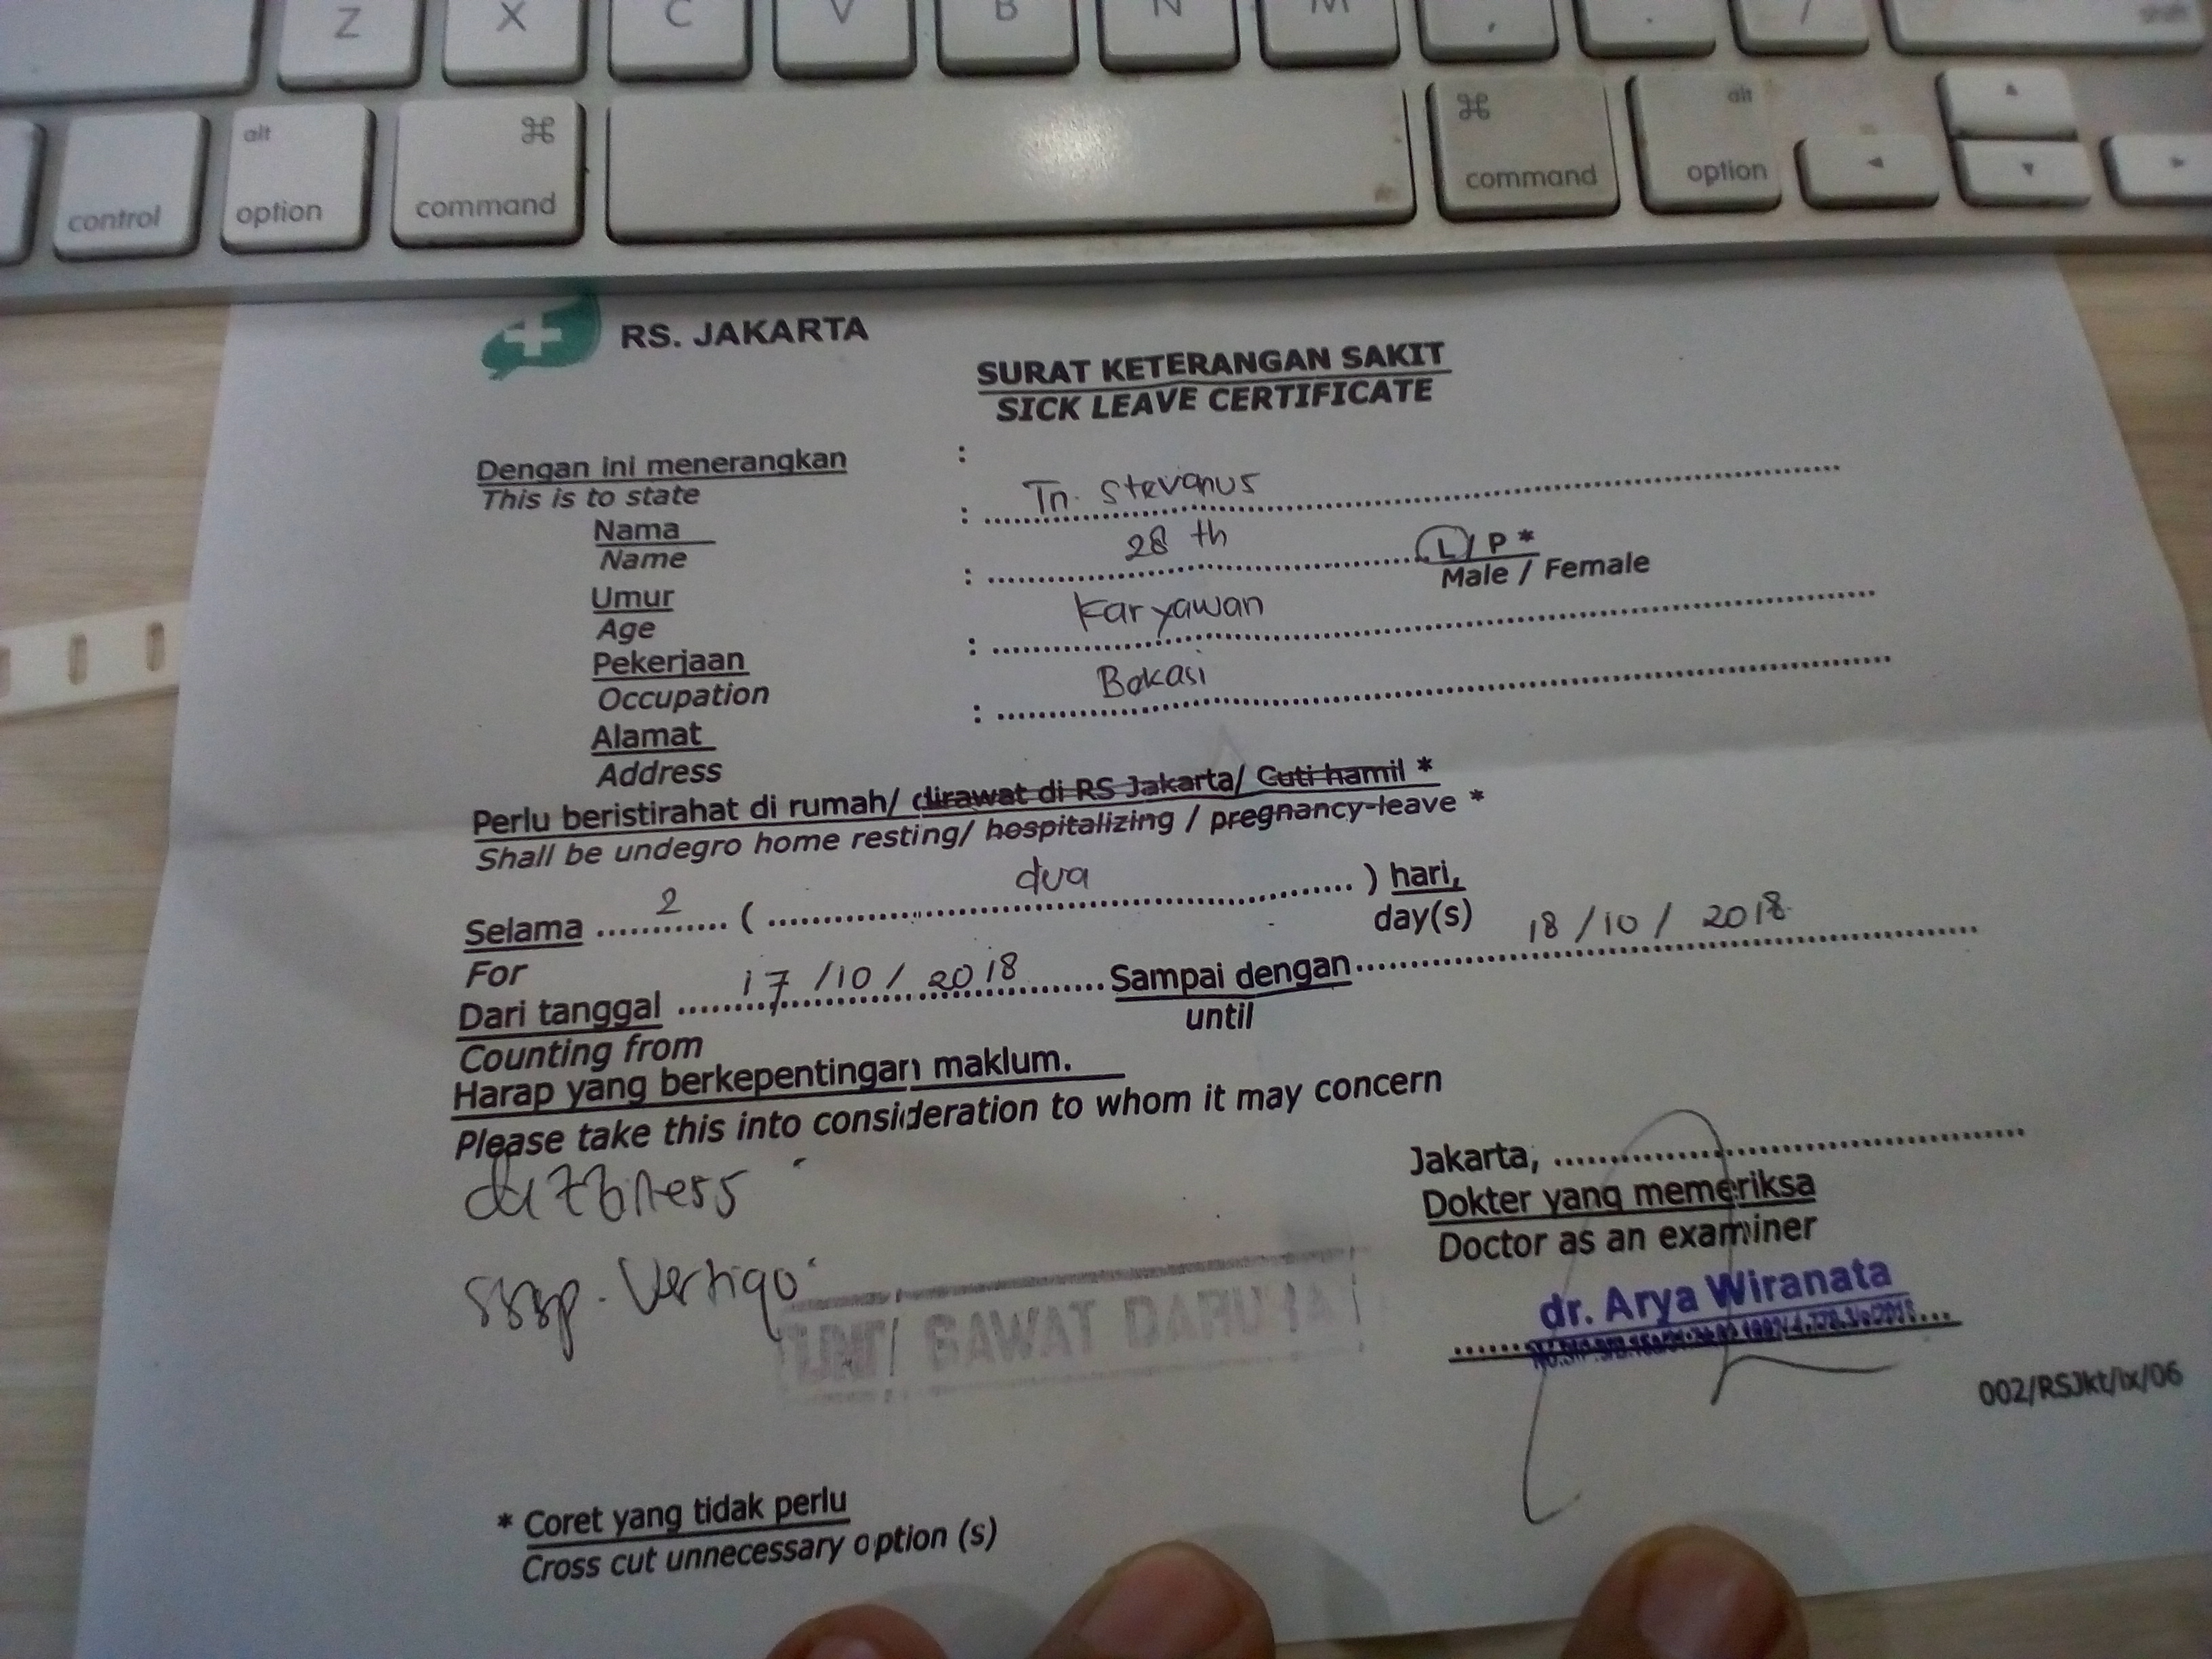 Z X C V B N M , . / shift
control alt option ⌘ command ⌘ command alt option ◄ ▲ ▼ ►
RS. JAKARTA
SURAT KETERANGAN SAKIT
SICK LEAVE CERTIFICATE
Dengan ini menerangkan :
This is to state
Nama : Tn. Stevanus
Name
Umur : 28 th L / P *
Age Male / Female
Pekerjaan : Karyawan
Occupation
Alamat : Bekasi
Address
Perlu beristirahat di rumah/ dirawat di RS Jakarta/ Cuti hamil *
Shall be undegro home resting/ hospitalizing / pregnancy-leave *
Selama 2 ( dua ) hari,
For day(s)
Dari tanggal 17/10/2018 Sampai dengan 18/10/2018
Counting from until
Harap yang berkepentingan maklum.
Please take this into consideration to whom it may concern
Jakarta,
Dokter yang memeriksa
Doctor as an examiner
Vertigo
UNIT GAWAT DARURAT
dr. Arya Wiranata
002/RSJkt/ix/06
* Coret yang tidak perlu
Cross cut unnecessary option (s)